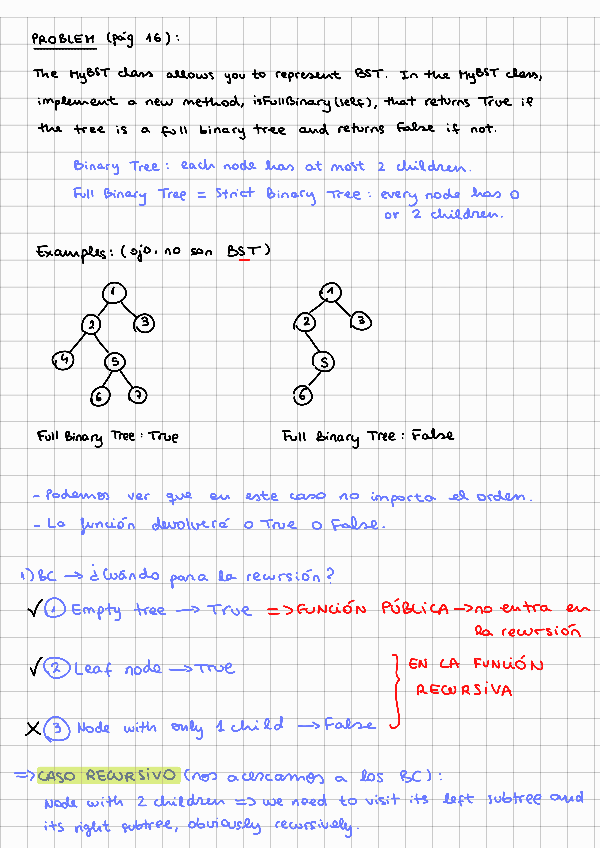 PROBLEM (pág 16):
The MyBST class allows you to represent BST. In the MyBST class,
implement a new method, isFullBinary(self), that returns True if
the tree is a full binary tree and returns False if not.
Binary Tree: each node has at most 2 children.
Full Binary Tree = Strict Binary Tree: every node has 0
or 2 children.
Examples: (ojo, no son BST)
1
2 3
4 5
6 7
Full Binary Tree: True
1
2 3
5
6
Full Binary Tree: False
- Podemos ver que en este caso no importa el orden.
- La función devolverá o True o False.
1) BC → ¿Cuándo para la recursión?
✓ 1 Empty tree → True => FUNCIÓN PÚBLICA → no entra en
la recursión
✓ 2 Leaf node → True
EN LA FUNCIÓN
RECURSIVA
X 3 Node with only 1 child → False
=> CASO RECURSIVO (nos acercamos a los BC):
Node with 2 children => we need to visit its left subtree and
its right subtree, obviously recursively.